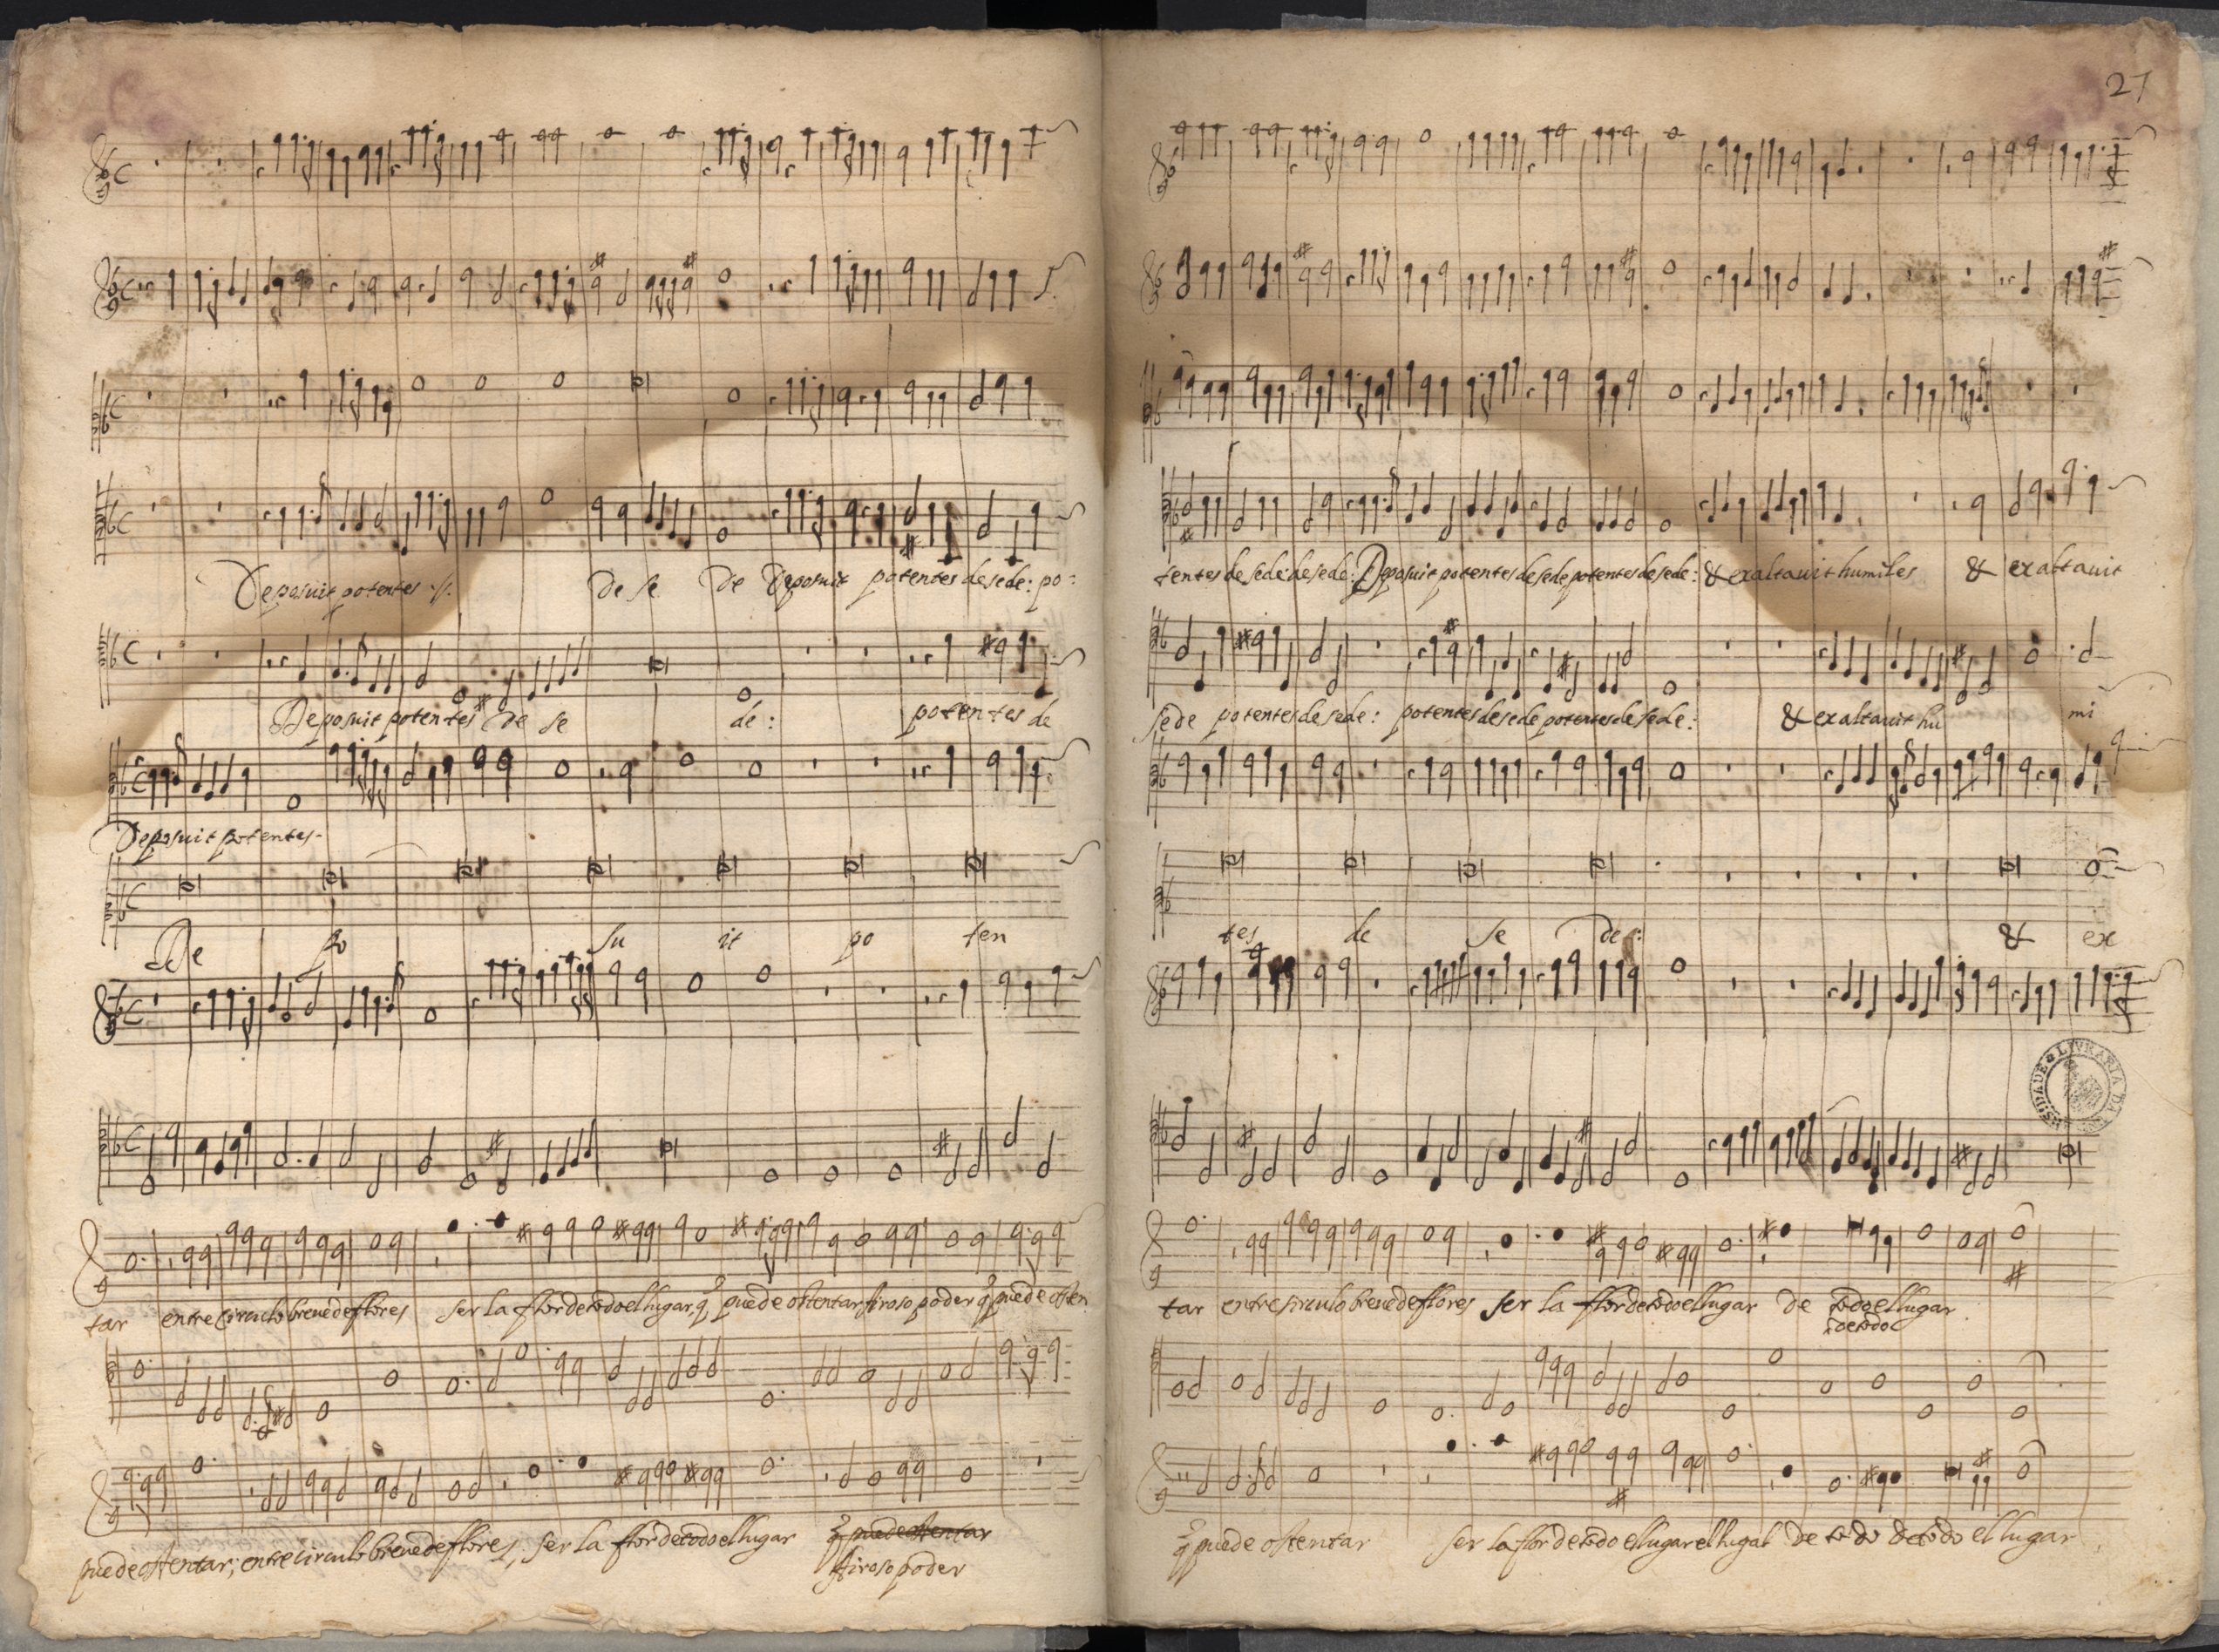 27
Deposuit potentes ·/· de se de Deposuit potentes de sede: po:
Deposuit potentes de se de: potentes de
Deposuit potentes.
De po su it po ten
tar entre circulo breve de flores ser la flor de todo el lugar, q̃ puede ostentar firoso poder q̃ puede osten
puede ostentar; entre circulo breve de flores, ser la flor de todo el lugar q̃ puede ostentar
firoso poder
tentes de sede: de sede: Deposuit potentes de sede potentes de sede: & exaltavit humiles & exaltavit
sede potentes de sede: potentes de sede potentes de sede: & exaltavit hu mi
tes de se de: & ex
LIVRARIA DA
tar entre sirculo breve de flores ser la flor de todo el lugar de todo el lugar
de todo
q̃ puede ostentar ser la flor de todo el lugar el lugal de to do de todo el lugar